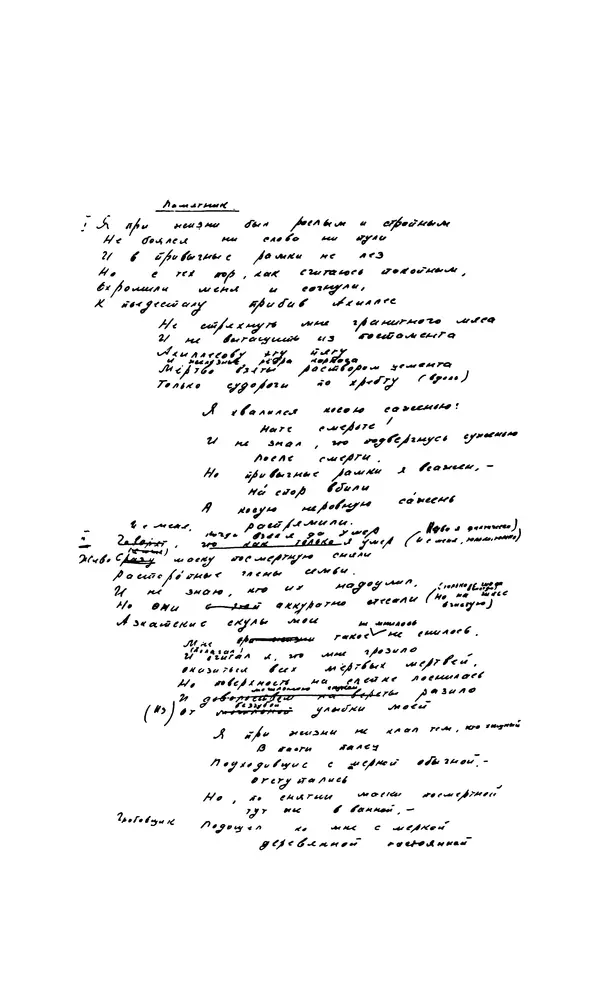 Памятник
I Я при жизни был рослым и стройным
Не боялся ни слова ни пули
И в привычные рамки не лез
Но с тех пор, как считаюсь покойным,
Охромили меня и согнули,
К пьедесталу прибив Ахиллес
Не стряхнуть мне гранитного мяса
И не вытащить из постамента
Ахиллесову эту пяту
И железные ребра каркаса
Мёртво взяты раствором цемента
Только судороги по хребту (вдоль)
Я хвалился косою саженью:
Нате смерьте!
И не знал, что подвергнусь суженью
После смерти.
Но в привычные рамки я всажен, –
На спор вбили
А косую неровную сажень
распрямили.
И с меня, когда взял да умер
II
что как только я умер
Живо маску посмертную сняли
Расторопные члены семьи.
И не знаю, кто их надоумил,
Но они аккуратно стесали
Азиатские скулы мои
Мне такое не снилось,
не мнилось
И считал я, что мне грозило
Оказаться всех мёртвых мертвей,
Но поверхность на слепке лоснилась
могильною скукой
И разило
беззубой
(Из) От улыбки моей
Я при жизни не клал тем, кто хищный
В пасти палец
Подходившие с меркой обычной –
Отступались
Но, по снятии маски посмертной
Тут же в ванной, –
Гробовщик подошел ко мне с меркой
деревянной